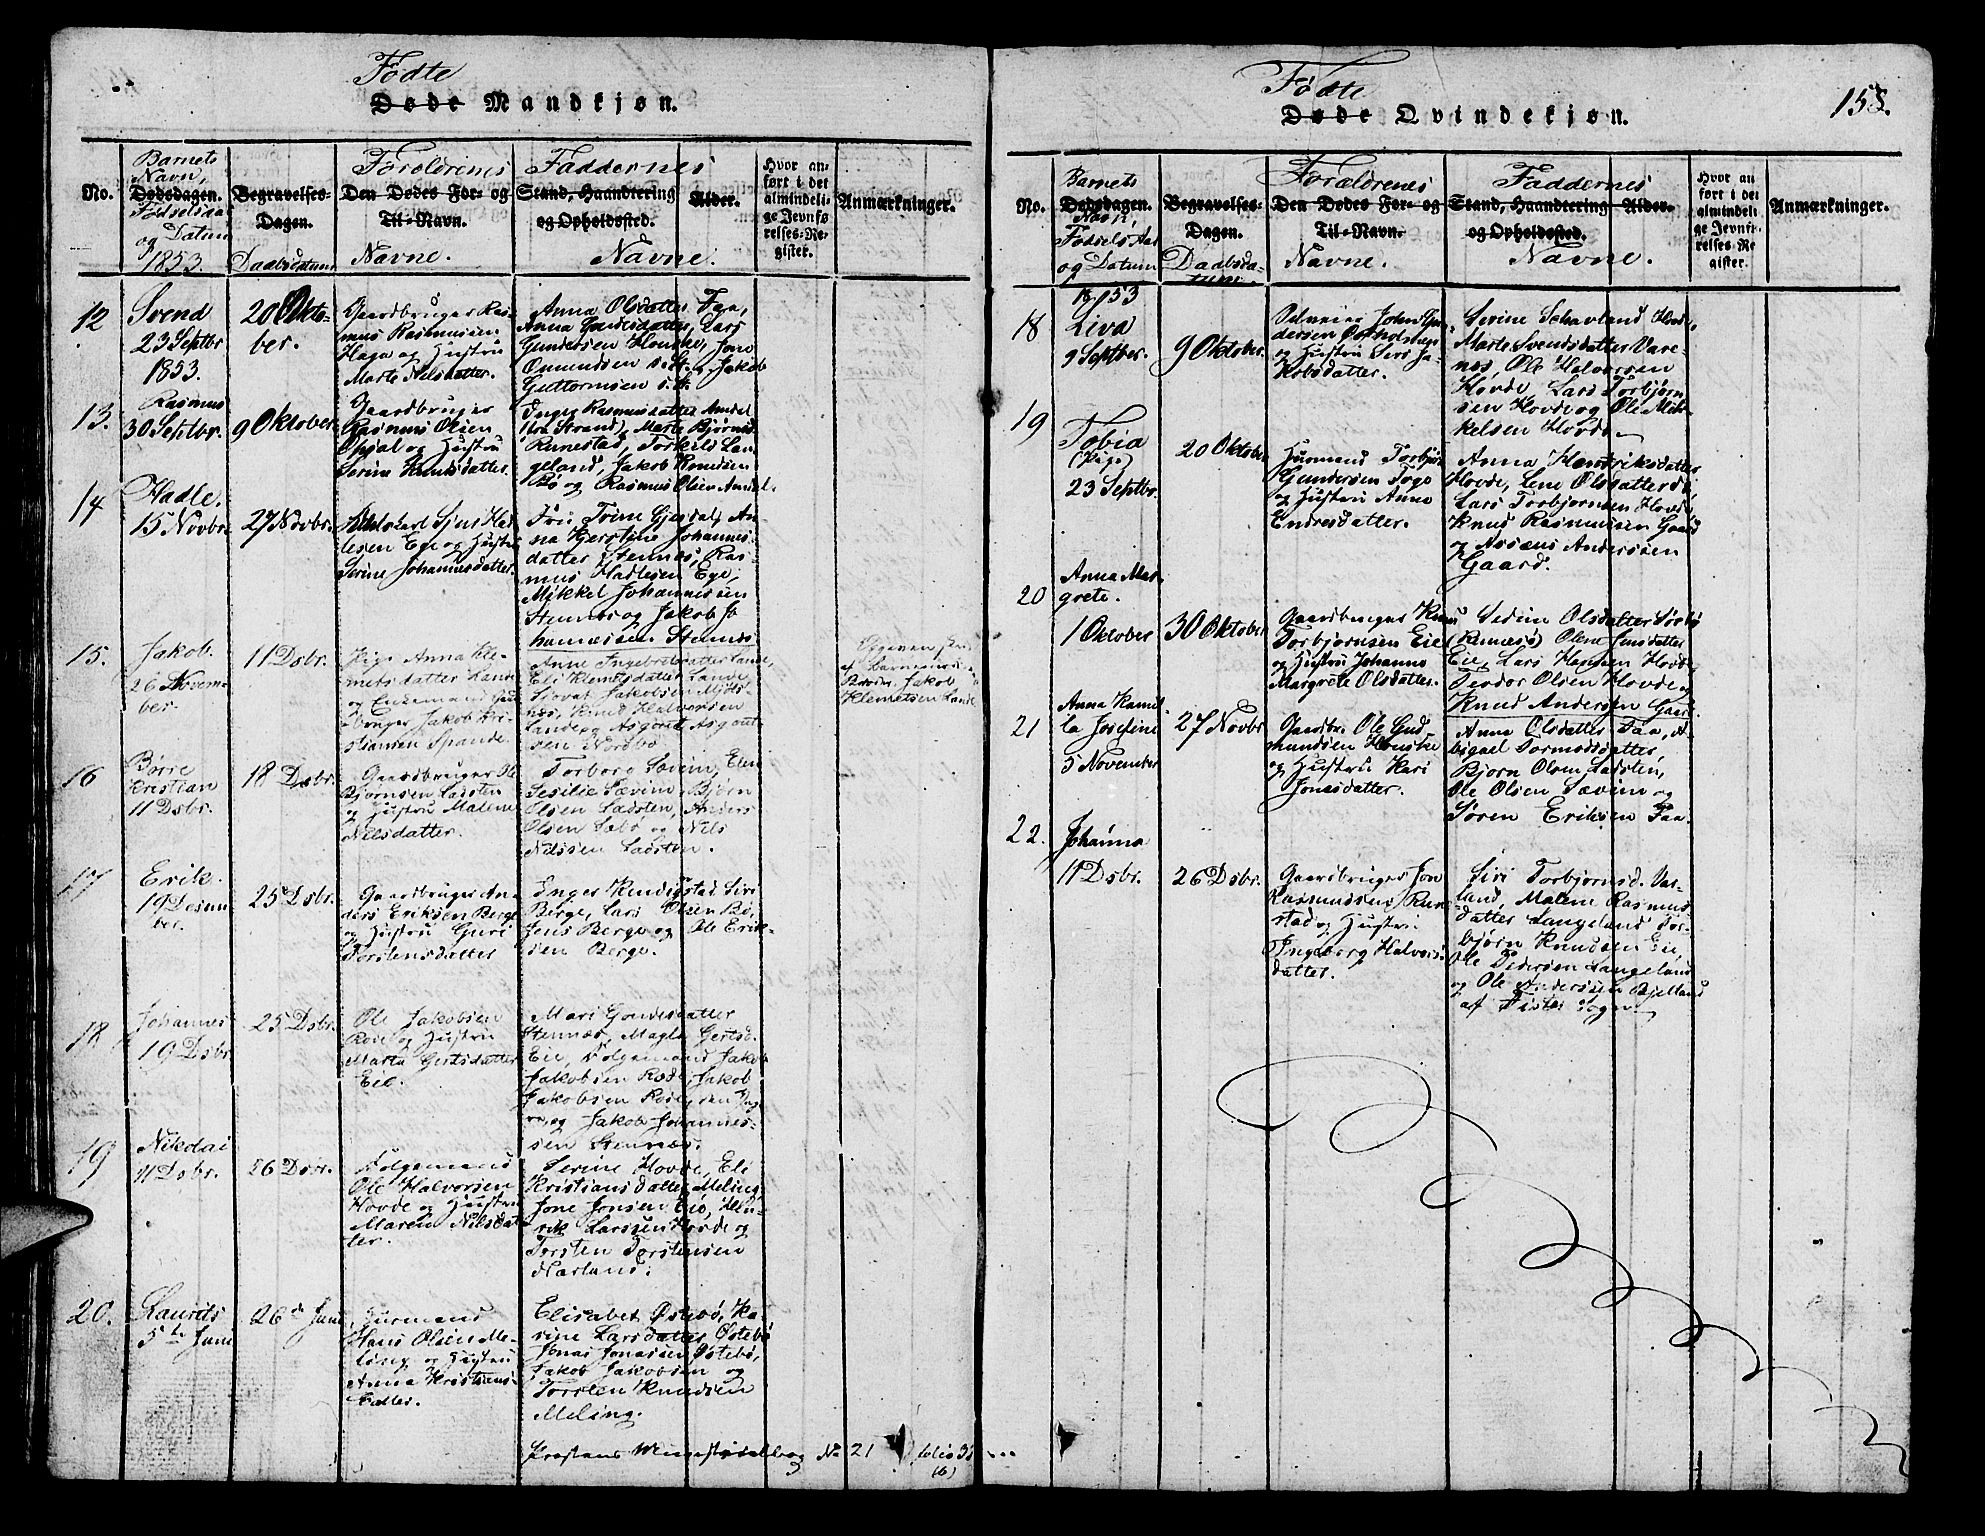 Fødte
Døde Mandkjøn.
No.
Barnets
Navn,
Dødsdagen.
Fødselsaar
og Datum
1853.
Begravelses-
Dagen.
Daabsdatum
Forældrenes
Den Dødes For- og
Til-Navn.
Navne.
Faddernes
Stand, Haandtering
og Opholdssted.
Navne.
Alder.
Hvor an-
ført i det
almindeli-
ge Jevnfø
relses-Re-
gister.
Anmærkninger.
12
Svend
23 Septbr
1853.
20 Okto-
ber.
Gaardbruger Ras-
mus Rasmusen
Haga og Hustru
Marte Nilsdatter.
Anna Olsdatter Faa,
Anna Gundersdatter, Lars
Gundersen Houske, Jone
Omundsen s. St. Jakob
Guttormsen s. st.
13.
Rasmus
30 Septbr.
9 Oktober
Gaardbruger
Rasmus Olsen
Opsal og Hustru
Serine Knudsdatter.
Inger Rasmusdatter Amdal
(fra Strand), Marte Bjørnsd
Runestad, Torkild Lan-
geland, Jakob Knudsen
Bø og Rasmus Olsen Amdal.
14
Hadle.
15 Novbr.
27 Novbr.
Sjur Had-
lesen Eie og Hustru
Serine Johannesdatter.
Fru Trine Gjesdal, An-
na Kjerstine Johannes-
datter Stennæs, Ras-
mus Hadlesen Ege,
Mikkel Johannessen
Stennæs og Jakob Jo-
hannessen Stennæs
15.
Jakob.
26 Novem-
ber.
11 Dsbr.
Pige Anna Kle-
metsdatter Lande
og Enkemand Gaa-
dbruger Jakob Kri-
stiansen Spande.
Anne Ingebretsdatter Lande,
Eli Klemetsdatter Lande,
Sjovat Jakobsen Mjøls-
næs, Knud Halvorsen
Lande og Asgout Asgout-
sen Nordbø
af Barnemod.
Broder Jakob
Klemetsen Lande
16
Børre
Kristian
11 Dsbr.
18 Dsbr.
Gaardbruger Ole
Bjørnsen Ladsten
og Hustru Malene
Nilsdatter.
Torborg Sævein, Elen
Sesilie Sævein, Bjørn
Olsen Ladsten, Anders
Olsen Sæbø og Nils
Nilssen Ladsten.
17
Erik.
19 Desem-
ber.
25 Dsbr.
Gaardbruger An-
ders Eriksen Berge
og Hustru Guri
Torstensdatter
Inger Kindigstad Siri
Berge, Lars Olsen Bø,
Jens Berge og Ole Erik-
sen Berge.
18.
Johannes
19 Dsbr
25 Dsbr.
Ole Jakobsen
Rose og Hustru
Marta Gertsdatter
Eie.
Mari Gondesdatter
Stennæs, Magla Gertsd.
Eie, Følgemand Jakob
Jakobsen Rode, Jakob
Jakobsen Rose, den Yng-
re, og Jakob Johannes-
sen Stennæs.
19
Nikolai
11 Dsbr.
26 Dsbr.
Følgemand
Ole Halvorsen
Hovde og Hustru
Maren Nilsdat-
ter.
Serine Hovde, Eli
Kristiansdatter Meling,
Jone Jonsen Eie, Hen-
rik Larssen Hovde og
Torsten Torstensen
Hærland.
20.
Laurits
5te Juni
26de Juni
Husmand
Hans Olsen Me-
ling og Hustru
Anna Kristians-
datter.
Elisabet Østebø, Ka-
rine Larsdatter Østebø
Jonas Jonassen Østebø,
Jakob Jakobsen og
Torsten Knudsen
Meling.
No 21
Fødte
Døde Qvindekjøn.
153.
No.
Barnets
Dødsdagen.
Navn,
Fødsels Aar
og Datum
1853
Begravelses-
Dagen.
Daabsda-
tum.
Forældrenes
Den Dødes For- og
Til-Navn.
Navne.
Faddernes
Stand, Haandtering
og Opholdssted.
Navne.
Alder.
Hvor an
ført i det
almindeli
ge Jevnfø-
relses-Re
gister.
Anmærkninger.
18
Liva
9 Septber.
9 Oktober.
John Gun-
dersen
og Hustru Siri Ja-
kobsdatter.
Serine Schavland Hovde,
Marte Svendsdatter Vare-
næs, Ole Halvorsen
Hovde, Lars Torbjørn-
sen Hovde og Ole Mik-
kelsen Hovde.
19
Tobia
(Pige)
23 Septbr.
20 Oktober
Husmand Torbjørn
Gundersen Fogs
og Hustru Anna
Endresdatter.
Anna Hendriksdatter
Hovde, Lene Olsdatter do,
Lars Torbjørnsen Hovde
Knud Rasmusen Gaard
og Assæus Andersen
Gaard.
20
Anna Mar-
grete.
1 Oktober
30 Oktober
Gaardbruger Knud
Torbjørnsen Eie
og Hustru Johanna
Margrete Olsdatter.
Serine Olsdatter Sørbø
(Rennesø) Olena Jensdatter
Eie, Lars Hansen Hovde
Teodor Olsen Hovde og
Knud Andersen Gaard.
21
Anna Kamil-
la Josefine
5 November
27 Novbr
Gaardbr. Ole Gud-
mundsen Houske
og Hustru Kari
Jonasdatter.
Anna Olsdatter Faa, A-
bigael Tormodsdatter,
Bjørn Olsen Ladsten,
Ole Olsen Sævein og
Søren Eriksen Faa.
22.
Johanna
11 Dsbr.
26 Dsbr.
Gaardbruger Jon
Rasmussen Rune-
stad og Hustru
Ingeborg Halvors-
datter.
Siri Torbjørnsd. Var-
land, Malene Rasmus-
datter Langeland Tor-
bjørn Knudsen Eie,
Ole Pedersen Langeland
og Ole Andersen Bjelland
af Fister Sogn.